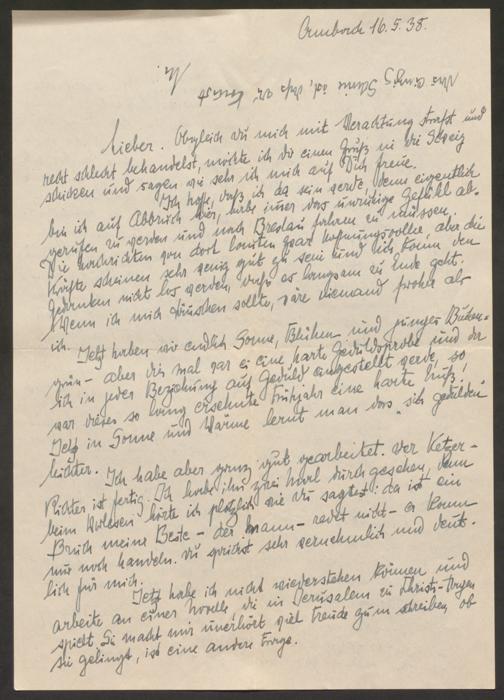 Ormborde 16.5.38.
Lieber. Obgleich du mich mit Verachtung strafst und
recht schlecht behandelst, möchte ich dir einen Gruß in die Schweiz
schicken und sagen wie sehr ich mich auf Dich freue.
Ich hoffe, daß ich da sein werde, denn eigentlich
bin ich auf Abbruch hier, habe immer das unruhige Gefühl ab-
gerufen zu werden und nach Breslau fahren zu müssen.
Die Nachrichten von dort lauten zwar hoffnungsvoller, aber die
Kräfte scheinen sehr wenig gut zu sein und ich kann den
Gedanken nicht los werden, daß es langsam zu Ende geht.
Wenn ich mich täuschen sollte, wäre niemand froher als
ich. Jetzt haben wir endlich Sonne, Blühen und junges Buchen-
grün - aber dies mal war es eine harte Geduldsprobe und da
ich in jeder Beziehung auf Geduld eingestellt werde, so
war dieses so lang ersehnte Frühjahr eine harte Nuß!
Jetzt in Sonne und Wärme lernt man das "sich gedulden"
leichter. Ich habe aber ganz gut gearbeitet. Der Ketzer-
Richter ist fertig. Ich habe ihn zwei mal durchgesehen, denn
beim Vorlesen hörte ich plötzlich wie du sagtest: da ist ein
Bruch meine Beste - der Mann - redet nicht - er kann
nur noch handeln. Du sprichst sehr vernehmlich und deut-
lich für mich.
Jetzt habe ich nicht wiederstehen können und
arbeite an einer Novelle, die in Jerusalem zu Christi-Tagen
spielt. Sie macht mir unerhört viel Freude zum schreiben, ob
sie gelingt, ist eine andere Frage.